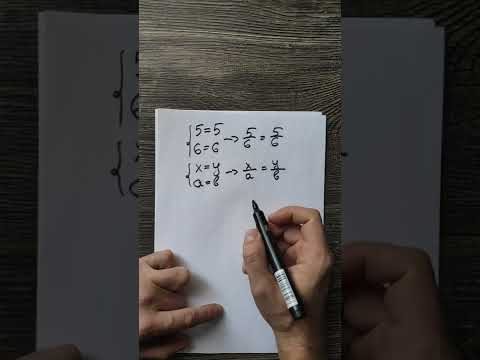 {5=5
6=6 → 5/6 = 5/6
{x=y
a=b → x/a = y/b